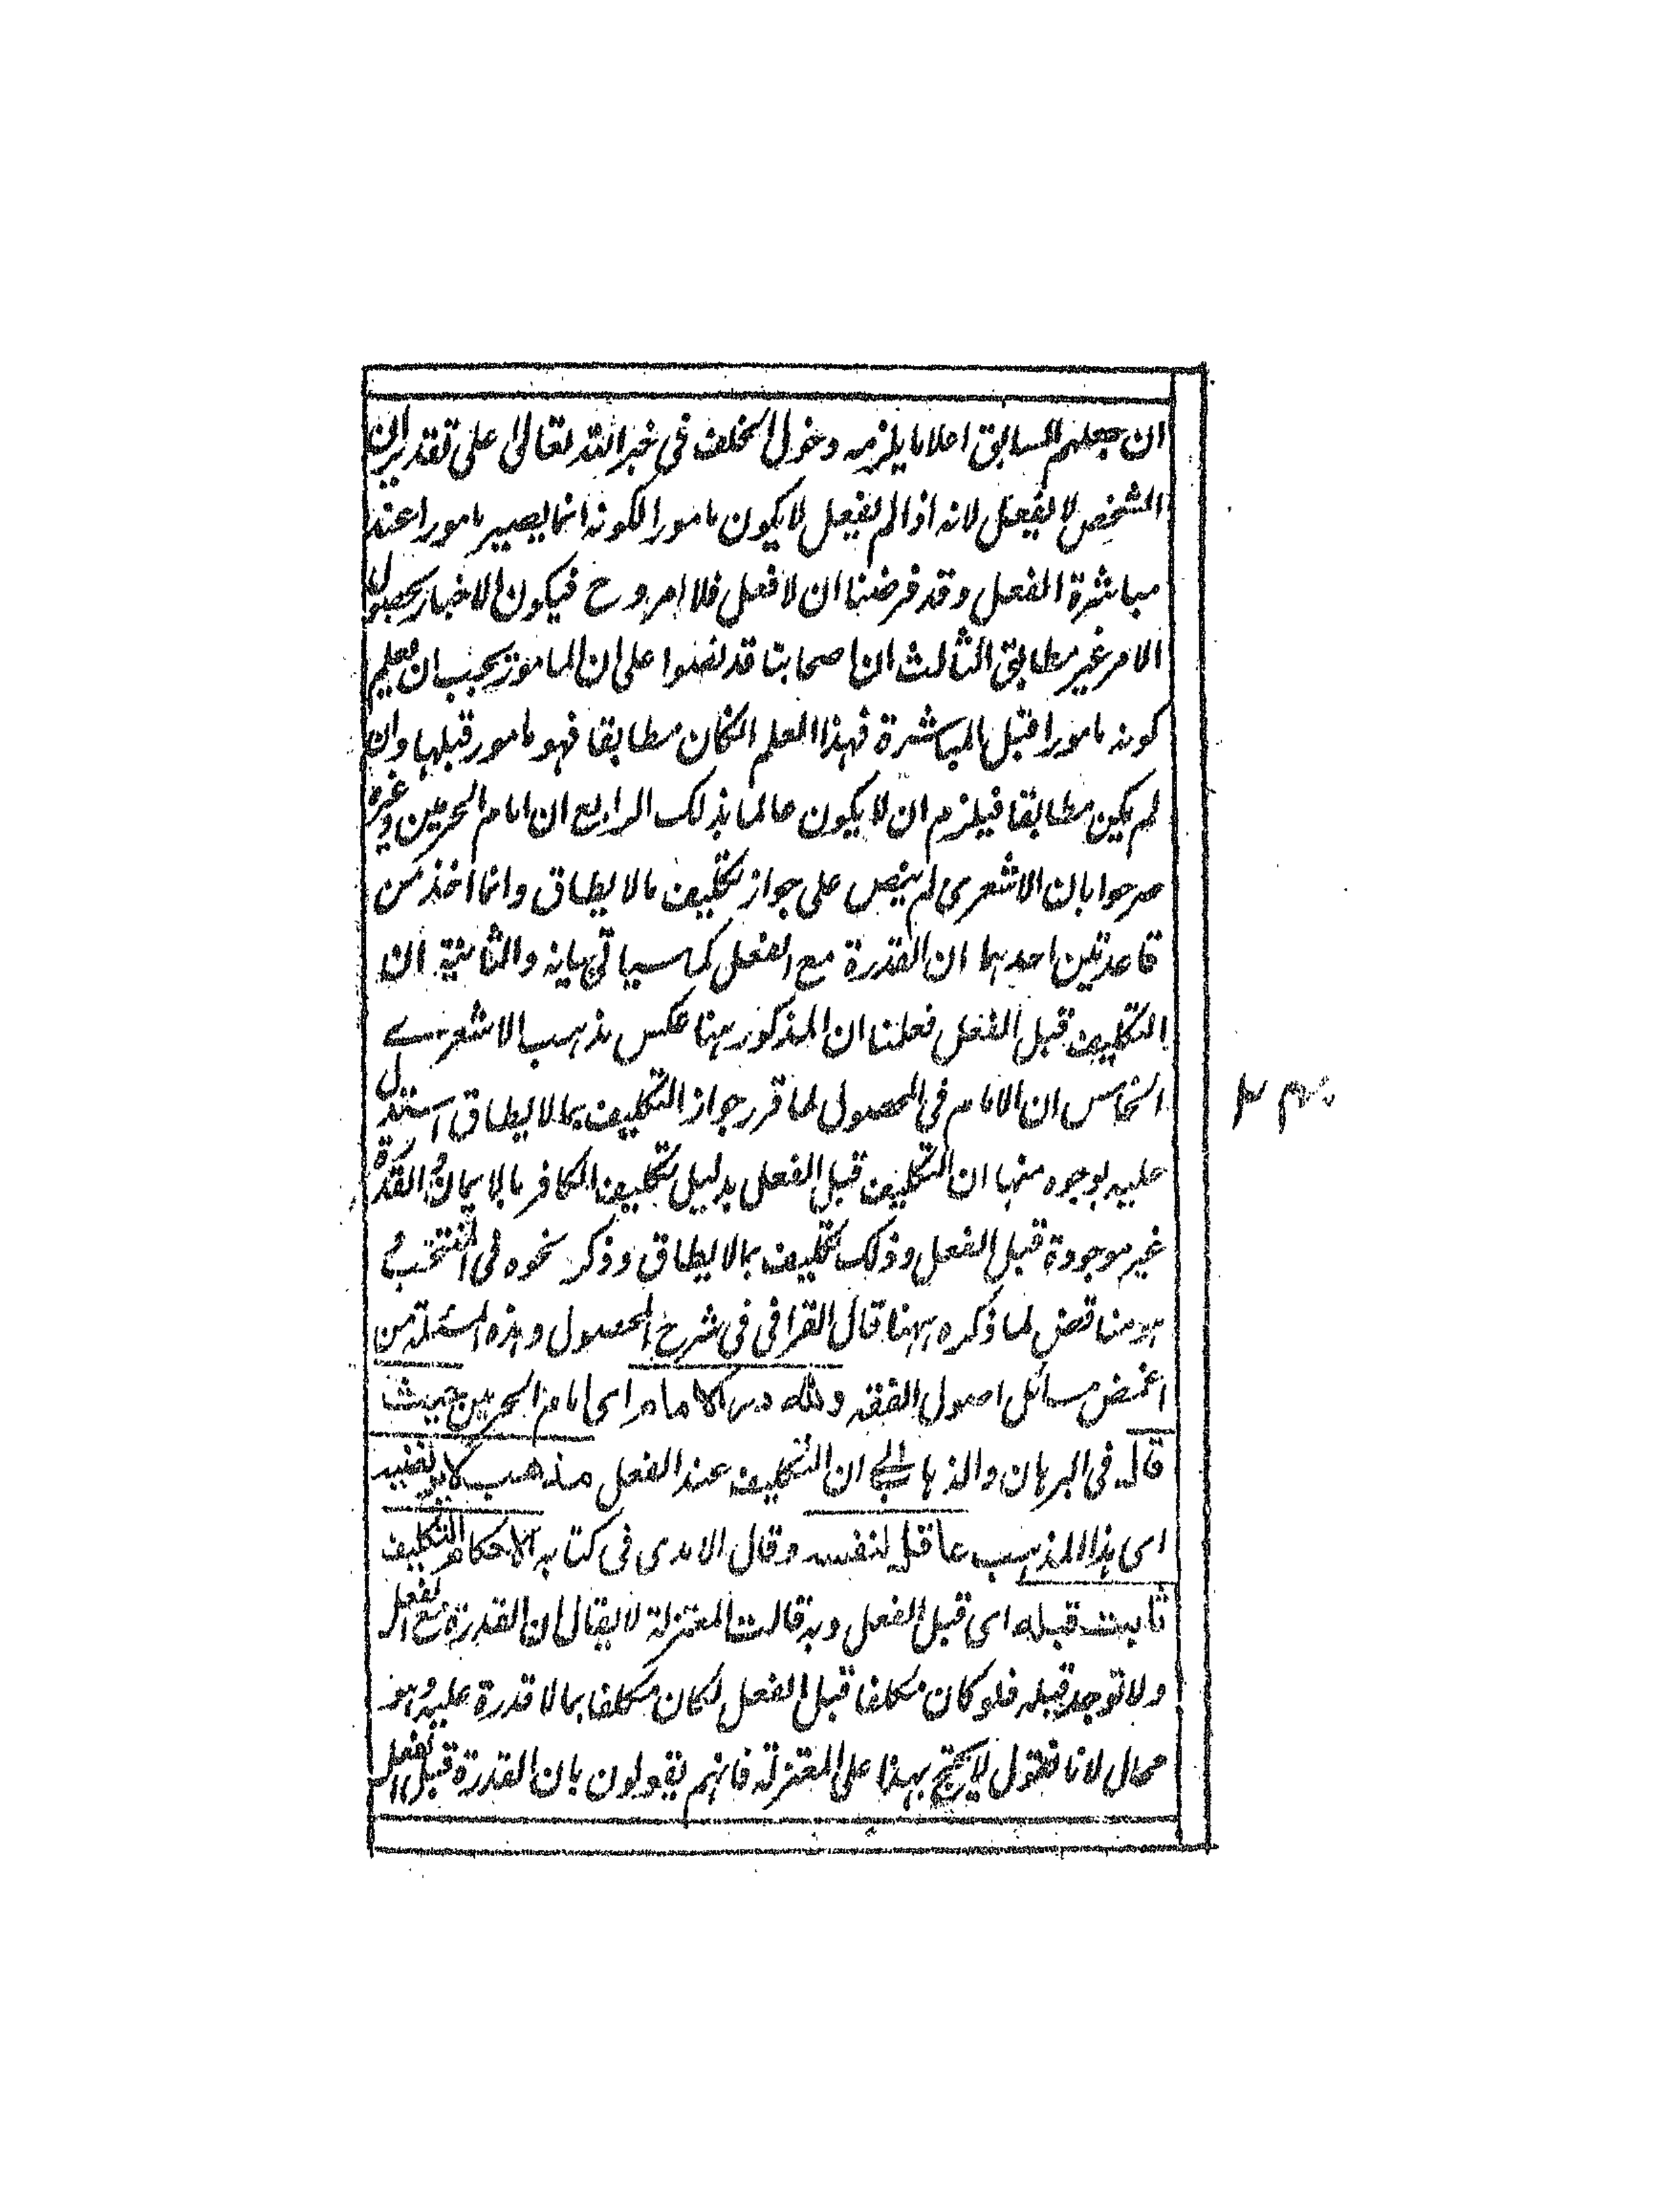 ان جعلهم السابق اعلاما يلزمه دخول الخلف في خبر الله تعالى على تقدير ان
الشخص لا يفعل لانه اذا لم يفعل لا يكون مامورا لكونه انما يصير مامورا عند
مباشرة الفعل وقد فرضنا ان لا فعل فلا امر وح فيكون الاخبار بحصول
الامر غير مطابق الثالث ان اصحابنا قد نصوا على ان المامور يجب ان يعلم
كونه مامورا قبل المباشرة فهذا العلم انكان مطابقا فهو مامور قبلها وان
لم يكن مطابقا فيلزم ان لا يكون عالما بذلك الرابع ان امام الحرمين وغيره
صرحوا بان الاشعرى لم ينص على جواز تكليف ما لا يطاق وانما اخذ من
قاعدتين احدهما ان القدرة مع الفعل كما سياتي بيانه والثانية ان
التكليف قبل الفعل فعلمنا ان المذكور هنا عكس مذهب الاشعرے
الخامس ان الامام في المحصول لما قرر جواز التكليف بما لا يطاق استدل
عليه بوجوه منها ان التكليف قبل الفعل بدليل تكليف الكافر بالايمان والقدرة
غير موجودة قبل الفعل وذلك تكليف بما لا يطاق وذكر نحوه في المنتخب و
هو مناقض لما ذكره ههنا قال القرافي في شرح المحصول وهذه المسئلة من
اغمض مسائل اصول الفقه ولله در الامام اى امام الحرمين حيث
قال في البرهان والذهاب الى ان التكليف عند الفعل مذهب لا يرتضيه
اى هذا المذهب عاقل لنفسه وقال الامدى في كتابه الاحكام التكليف
ثابت قبله اى قبل الفعل وبه قالت المعتزلة لا يقال ان القدرة مع الفعل
ولا توجد قبله فلو كان مكلفا قبل الفعل لكان مكلفا بما لا قدرة عليه وهو
محال لانا نقول لا يحتج بهذا على المعتزلة فانهم يقولون بان القدرة قبل الفعل